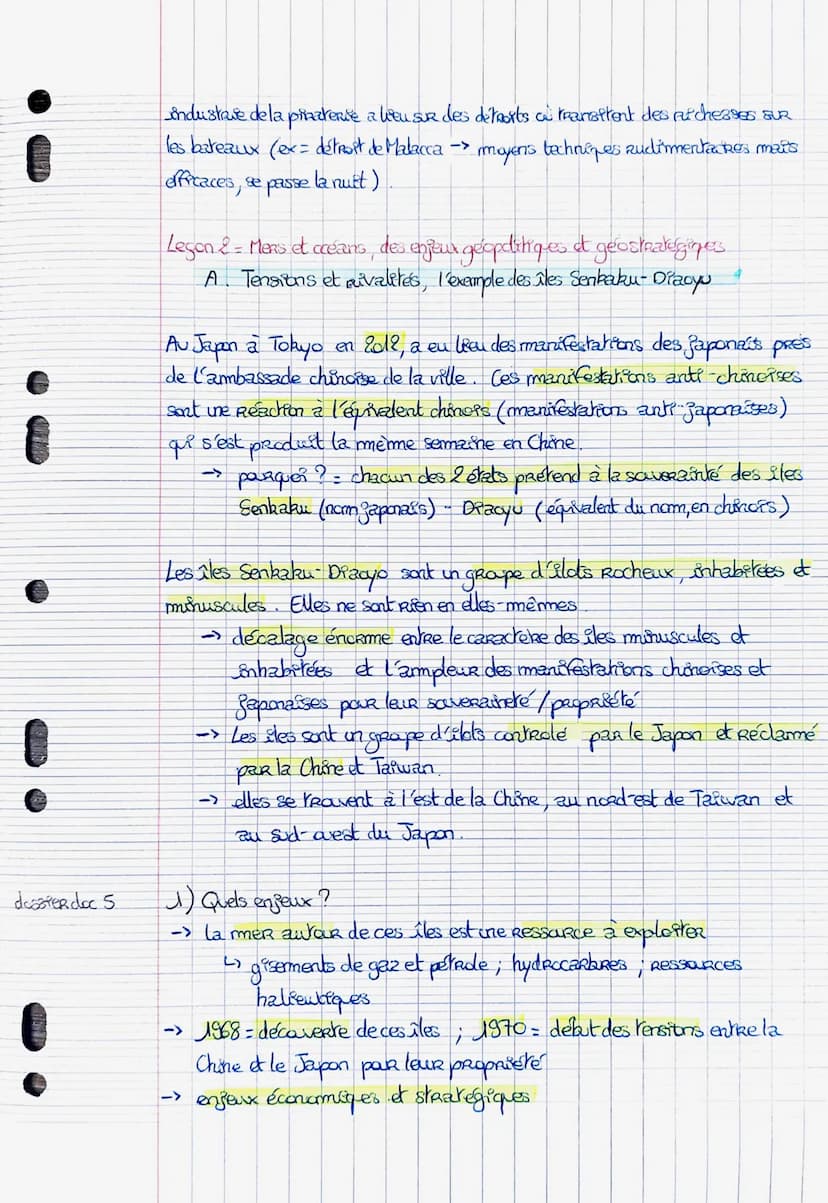 industrie de la piraterie a lieu sur des détroits où transitent des richesses sur
les bateaux (ex = détroit de Malacca -> moyens techniques rudimmentaires mais
efficaces, se passe la nuit)
Leçon 2 = Mers et océans, des enjeux géopolitiques et géostratégiques
A. Tensions et rivalités, l'exemple des îles Senkaku-Diaoyu
Au Japon à Tokyo en 2012, a eu lieu des manifestations des japonais près
de l'ambassade chinoise de la ville. Ces manifestations anti-chinoises
sont une réaction à l'équivalent chinois (manifestations anti-japonaises)
qui s'est produit la même semaine en Chine.
-> pourquoi ? = chacun des 2 états prétend à la souverainté des îles
Senkaku (nom japonais) - Diaoyu (équivalent du nom, en chinois)
Les îles Senkaku-Diaoyo sont un groupe d'îlots rocheux, inhabitées et
minuscules. Elles ne sont rien en elles-mêmes
-> décalage énorme entre le caractère des îles minuscules et
inhabitées et l'ampleur des manifestations chinoises et
japonaises pour leur souveraineté/propriété
-> Les îles sont un groupe d'îlots contrôlé par le Japon et réclamé
par la Chine et Taïwan.
-> elles se trouvent à l'est de la Chine, au nord-est de Taïwan et
au sud-ouest du Japon.
dossier doc 5
1) Quels enjeux ?
-> la mer autour de ces îles est une ressource à exploiter
↳ gisements de gaz et pétrole ; hydrocarbures ; ressources
halieutiques
-> 1968 = découverte de ces îles ; 1970 = début des tensions entre la
Chine et le Japon pour leur propriété
-> enjeux économiques et stratégiques